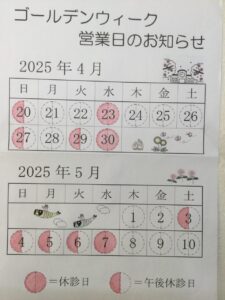 ゴールデンウィーク
営業日のお知らせ
2025年4月
日 月 火 水 木 金 土
20 21 22 23 24 25 26
27 28 29 30
2025年5月
日 月 火 水 木 金 土
1 2 3
4 5 6 7 8 9 10
=休診日 =午後休診日